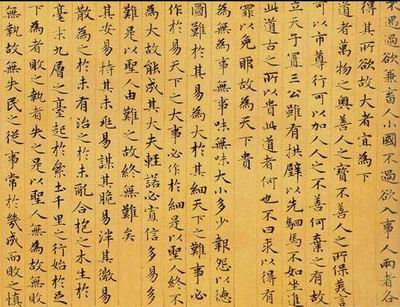 不過欲兼畜人小國不過欲入事人兩者各
得其所欲故大者宜為下
道者萬物之奧善人之寶不善人之所保美
可以市尊行可以加人人之不善何棄之有故
立天子置三公雖有拱璧以先駟馬不如坐進
此道古之所以貴此道者何也不曰求以得有
罪以免耶故為天下貴
為無為事無事味無味大小多少報怨以德
圖難於其易為大於其細天下之難事必
作於易天下之大事必作於細是以聖人終不
為大故能成其大夫輕諾必寡信多易多
難是以聖人由難之故終無難矣
其安易持其未兆易謀其脆易泮其微易
散為之於未有治之於未亂合抱之木生於
毫末九層之臺起於累土千里之行始於足
下為者敗之執者失之是以聖人無為故無敗
無執故無失民之從事常於幾成而敗之慎